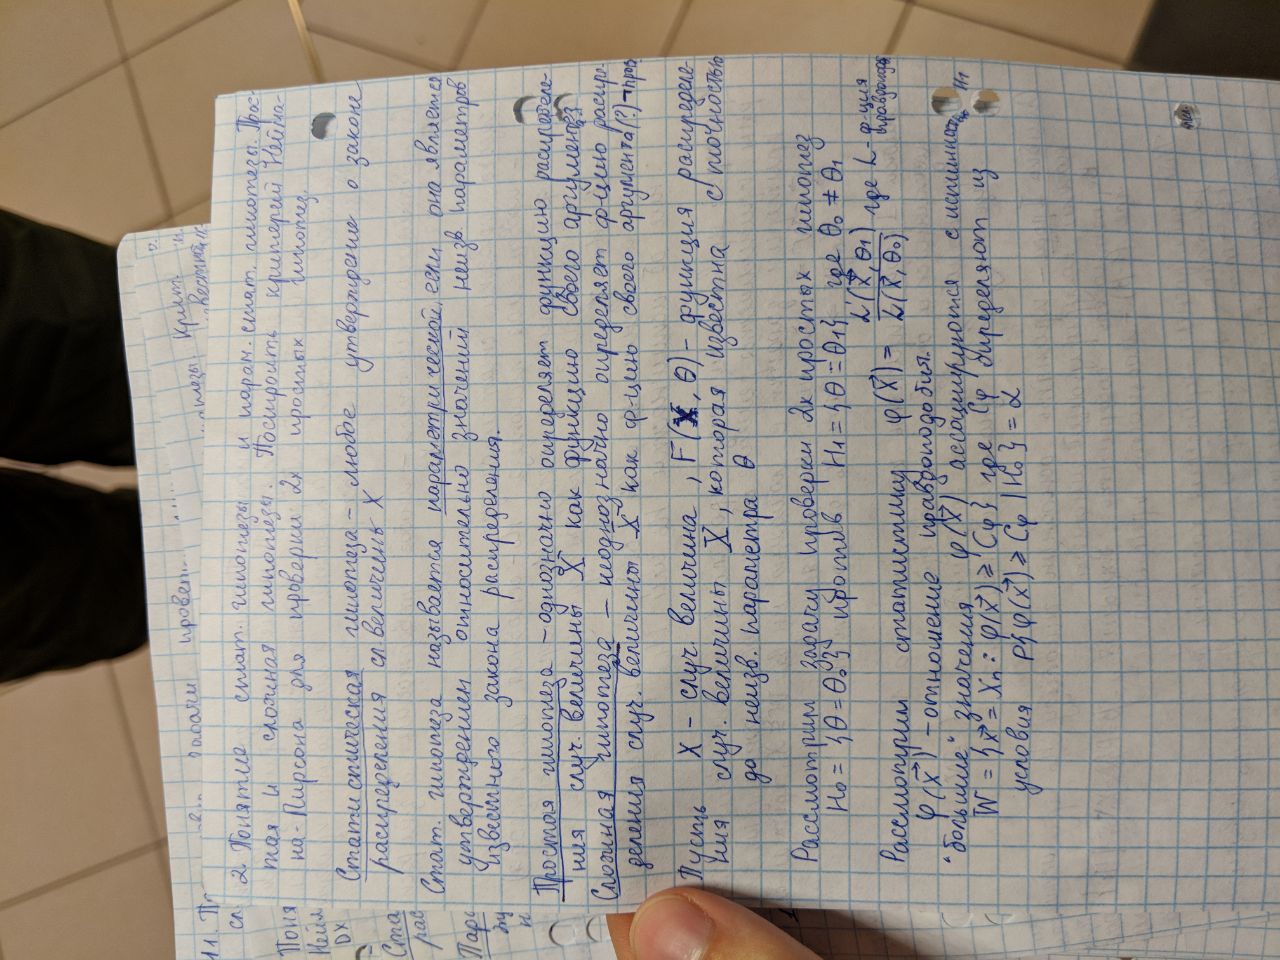 11. П
задачи
Крит.
сл
2. Понятие стат. гипотезы и парам. стат. гипотезы. Прос-
тая и сложная гипотезы. Построить критерий Нейма-
на-Пирсона для проверки 2х простых гипотез.
Поня
Ней
DX
Статистическая гипотеза – любое утверждение о законе
распределения сл. величины X
Ста
рас
Стат. гипотеза называется параметрической, если она является
утверждением относительно значений неизв. параметров
известного закона распределения.
Пар
Простая гипотеза – однозначно определяет функцию распределе-
ния случ. величины X как функцию своего аргумента
Сложная гипотеза – неоднозначно определяет ф-цию распре-
деления случ. величины X как ф-цию своего аргумента (?)
Пусть X – случ. величина, F(X, θ) – функция распределе-
ния случ. величины X, которая известна с точностью
до неизв. параметра θ
Рассмотрим задачу проверки 2х простых гипотез
H₀ = {θ = θ₀} против H₁ = {θ = θ₁}, где θ₀ ≠ θ₁
Рассмотрим статистику φ(x⃗) = L(x⃗, θ₁) / L(x⃗, θ₀) где L - ф-ция правдопод.
φ(x⃗) – отношение правдоподобия.
"большие" значения φ(x⃗) ассоциируются с истинностью H1
W = {x⃗ = Xn : φ(x⃗) ⩾ Cφ} где Cφ определяют из
условия P{φ(x⃗) ⩾ Cφ | H₀} = α